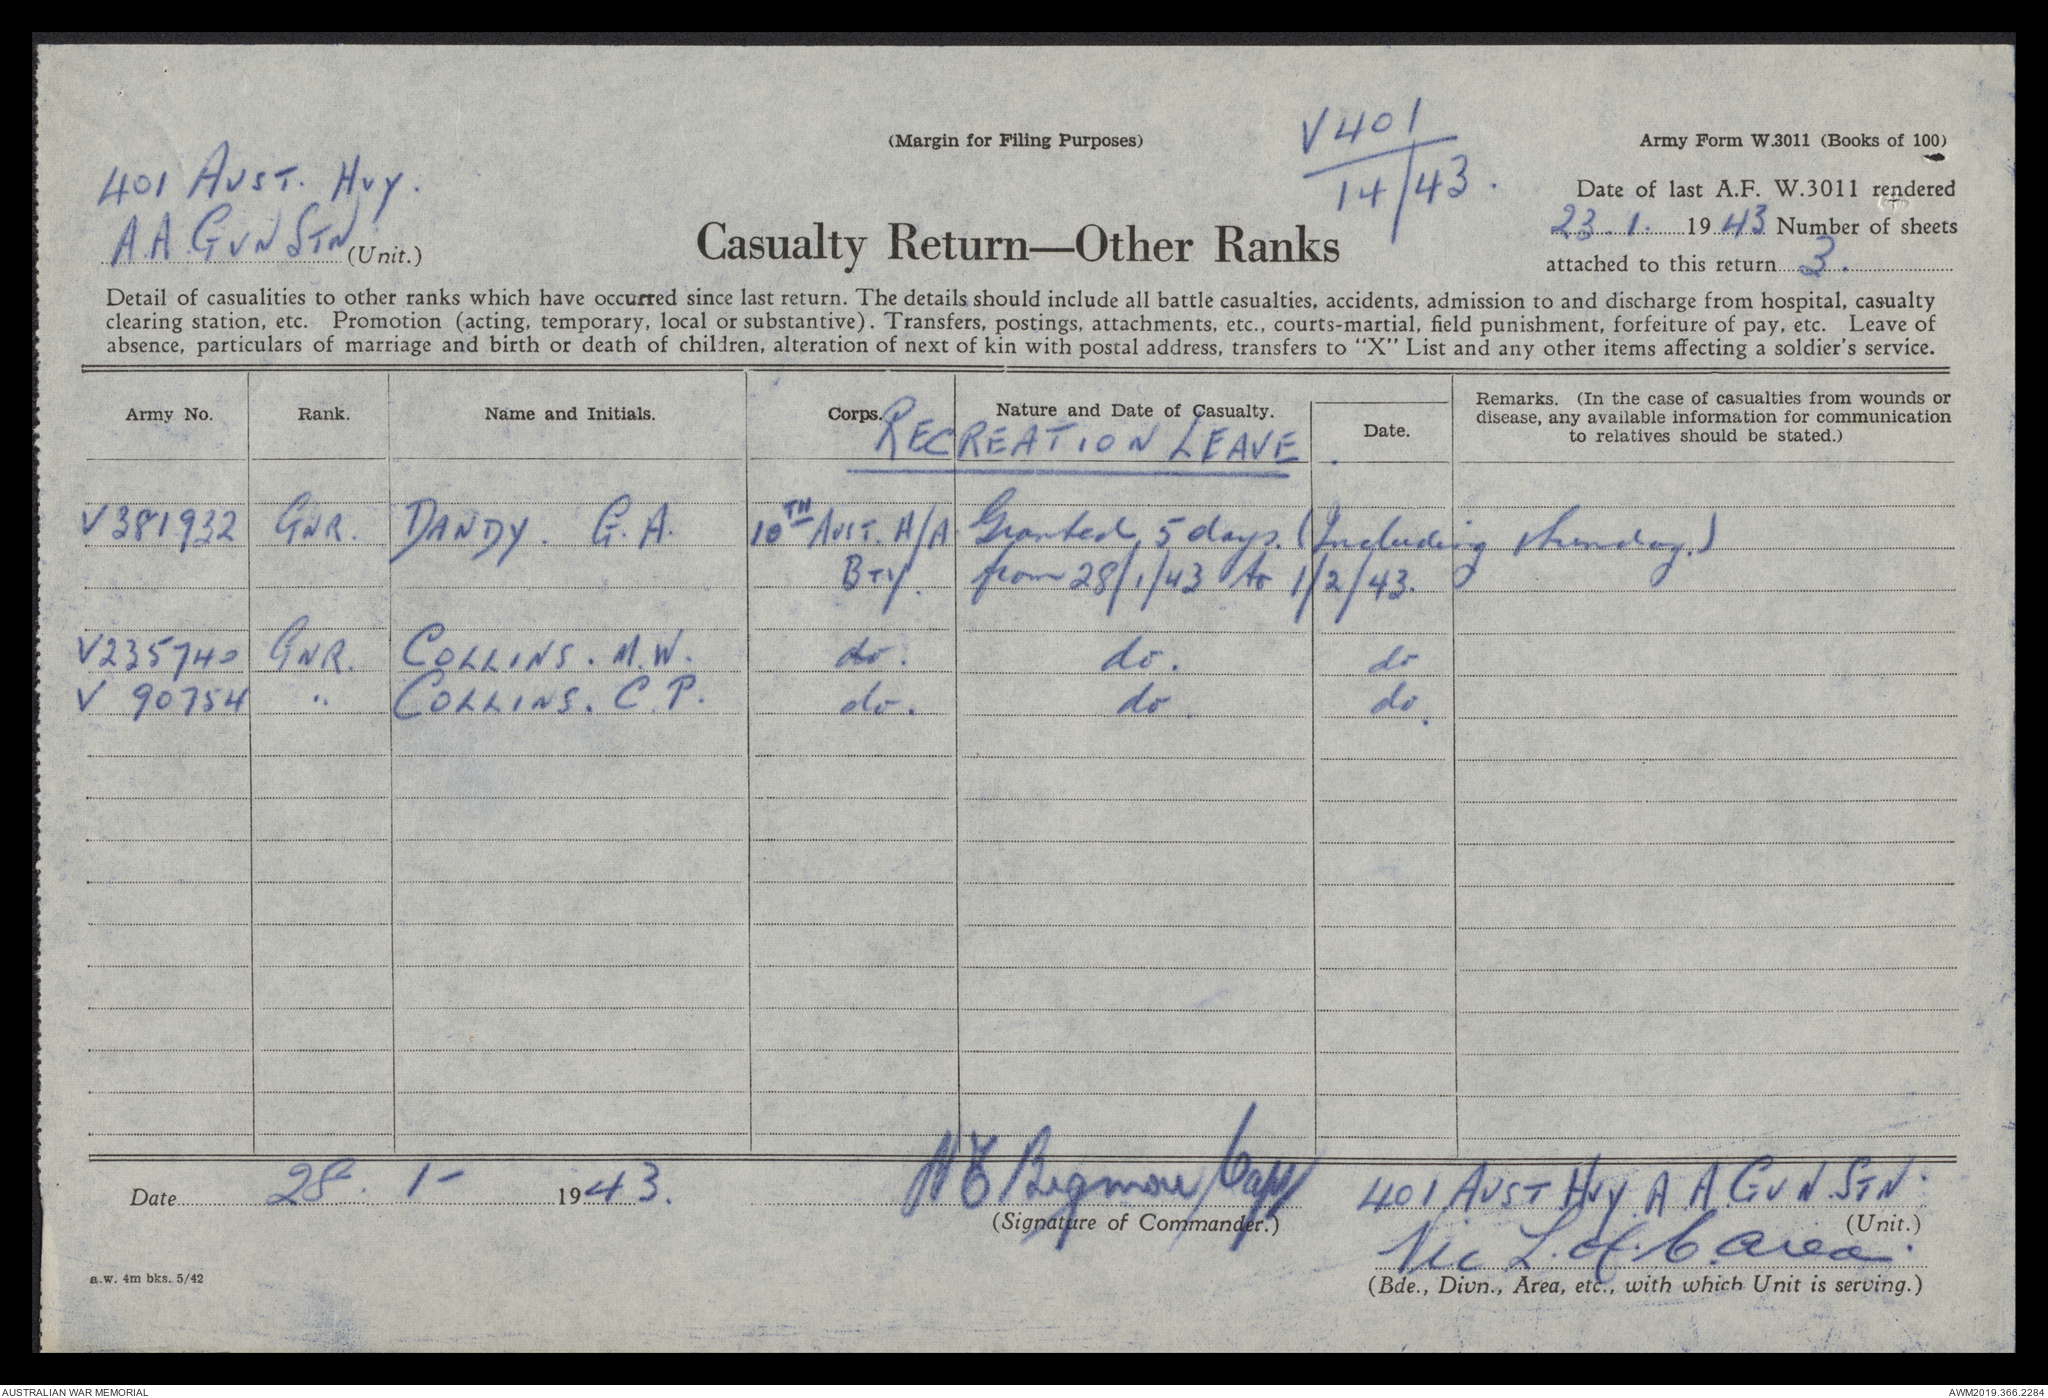 (Margin for Filing Purposes)
V401
14/43.
Army Form W.3011 (Books of 100)
401 AUST. HVY.
A.A. GUN STN (Unit.)
Casualty Return—Other Ranks
Date of last A.F. W.3011 rendered
23.1. 1943 Number of sheets
attached to this return 3.
Detail of casualities to other ranks which have occurred since last return. The details should include all battle casualties, accidents, admission to and discharge from hospital, casualty
clearing station, etc. Promotion (acting, temporary, local or substantive). Transfers, postings, attachments, etc., courts-martial, field punishment, forfeiture of pay, etc. Leave of
absence, particulars of marriage and birth or death of children, alteration of next of kin with postal address, transfers to "X" List and any other items affecting a soldier's service.
Army No. Rank. Name and Initials. Corps. Nature and Date of Casualty. Date. Remarks. (In the case of casualties from wounds or
disease, any available information for communication
to relatives should be stated.)
RECREATION LEAVE
V381932 GNR. DANDY. G.A. 10TH AUST. A/A Granted 5 days. (Including Sunday.)
BTY. from 28/1/43 to 1/2/43.
V235740 GNR. COLLINS. M.W. do. do. do
V 90754 " COLLINS. C.P. do. do do.
Date 28. 1- 1943. Bigmore Capt 401 AUST HVY A A GUN STN.
(Signature of Commander.) (Unit.)
Vic L. of C. area.
a.w. 4m bks. 5/42 (Bde., Divn., Area, etc., with which Unit is serving.)
AUSTRALIAN WAR MEMORIAL AWM2019.366.2284